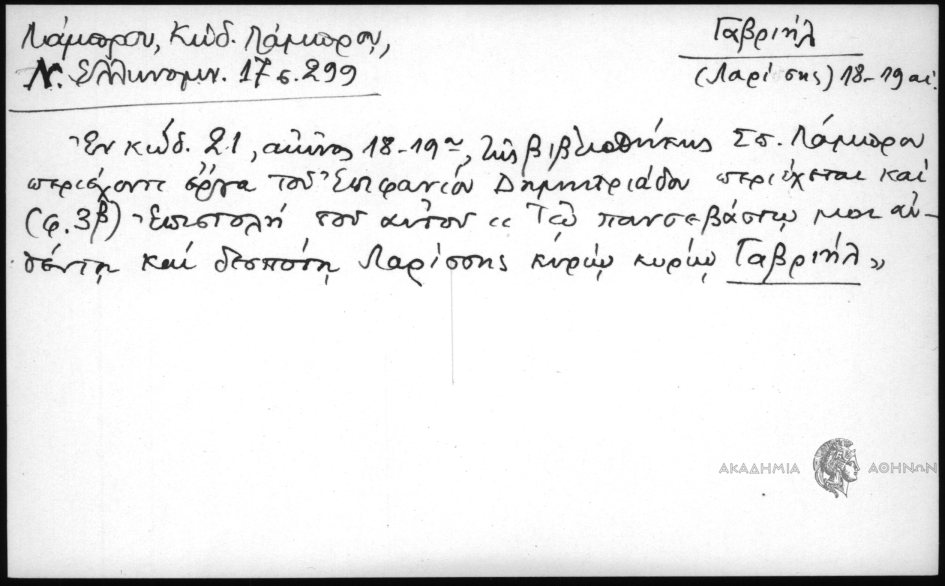 Λάμπρου, Κώδ. Λάμπρου,
Ν. Ελληνομν. 17 σ. 299
Γαβριήλ
(Λαρίσης) 18-19 αἰ.
Ἐν κώδ. 21, αἰῶνος 18-19ου, τῆς βιβλιοθήκης Σπ. Λάμπρου
περιέχοντι ἔργα τοῦ Ἐπιφανίου Δημητριάδου περιέχεται καὶ
(φ. 3β) Ἐπιστολή τοῦ αὐτοῦ « Τῷ πανσεβάστῳ μοι αὐ-
θέντῃ καὶ δεσπότῃ Λαρίσσης κύρῳ κυρίῳ Γαβριήλ »
ΑΚΑΔΗΜΙΑ ΑΘΗΝΩΝ